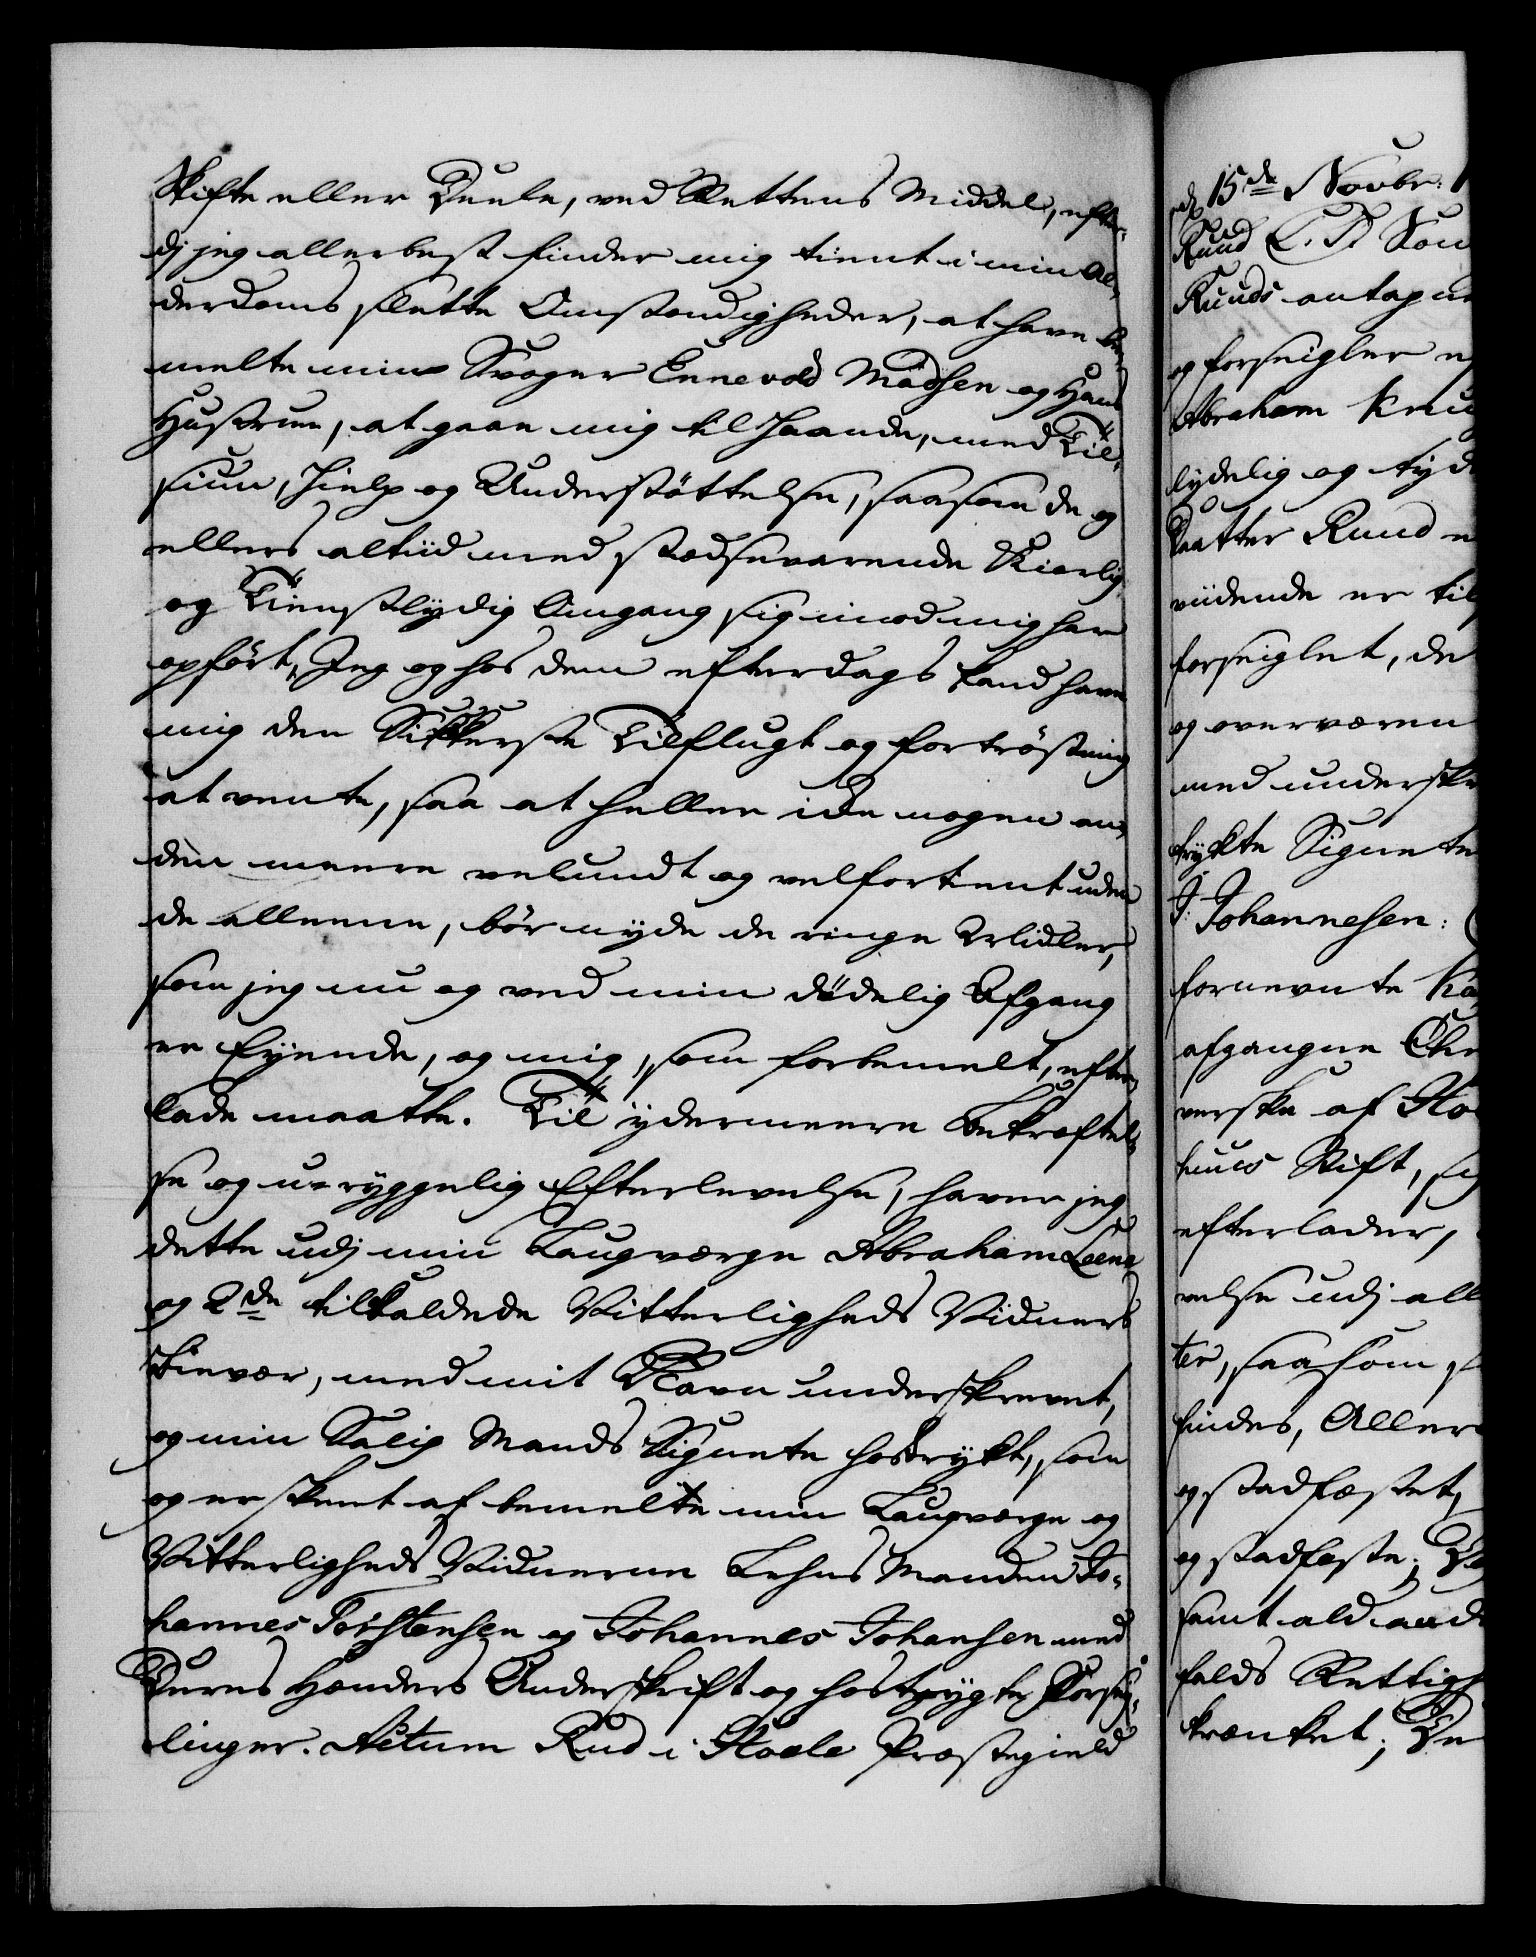 Skifte eller Deele, ved Rettens Middel, efter-
dj jeg allerbest finder mig tient i min Al-
derdoms slette Omstændigheder, at have be-
melte min Svoger Ennevold Madsen og Hans
Hustrue, at gaae mig til Haande, med Til-
siun, Hielp og Understøttelse, saasom de og
ellers altiid med stedsevarende Kierlig
og Tienstlydig Omgang sig imod mig har
opført, Jeg og hos dem efterdags kand have
mig den Sikkerste Tilflugt og fortrøstning
at vente, saa at heller icke nogen an-
den meere velundt og velfortient uden
de alleene, bør nyde de ringe Midler,
som jeg nu og ved min dødelig Afgang
er Eyende, og mig, som forbemelt, efter-
lade maatte. Til ydermeere Bekræftel-
se og u-ryggelig Efterlevelse, haver jeg
dette udj min Laugværge Abraham Leene
og 2de tilkaldede Vitterligheds Vidners
Nærvær, med mit Navn underskrevet,
og min Salig Mands Signete hostrykt, som
og er skeet af bemelte min Laugværge og
Vitterligheds Vidnerne Lehns Manden Jo-
hannes Torstensen og Johannes Johansen med
Deres Hænders Underskrift og hostrygte Forseg-
linger. Actum Rud i Hoele Præstegield
d 15de Novbr:
Ruud
Ruuds
og forseigler
Abraham Knu
lydelig og tyd
Daatter Ruud
viidende er til
forseiglet, de
og overværen
med underskr
trykte Signete
J: Johannesen:
fornevnte
afgangne Chr
verske af Ho
huus Stift,
efterlader,
velse udj all
ter, saasom
findes, Aller
og stadfæstet,
og stadfæste;
samt ald and
falds Rettigh
krænket; De